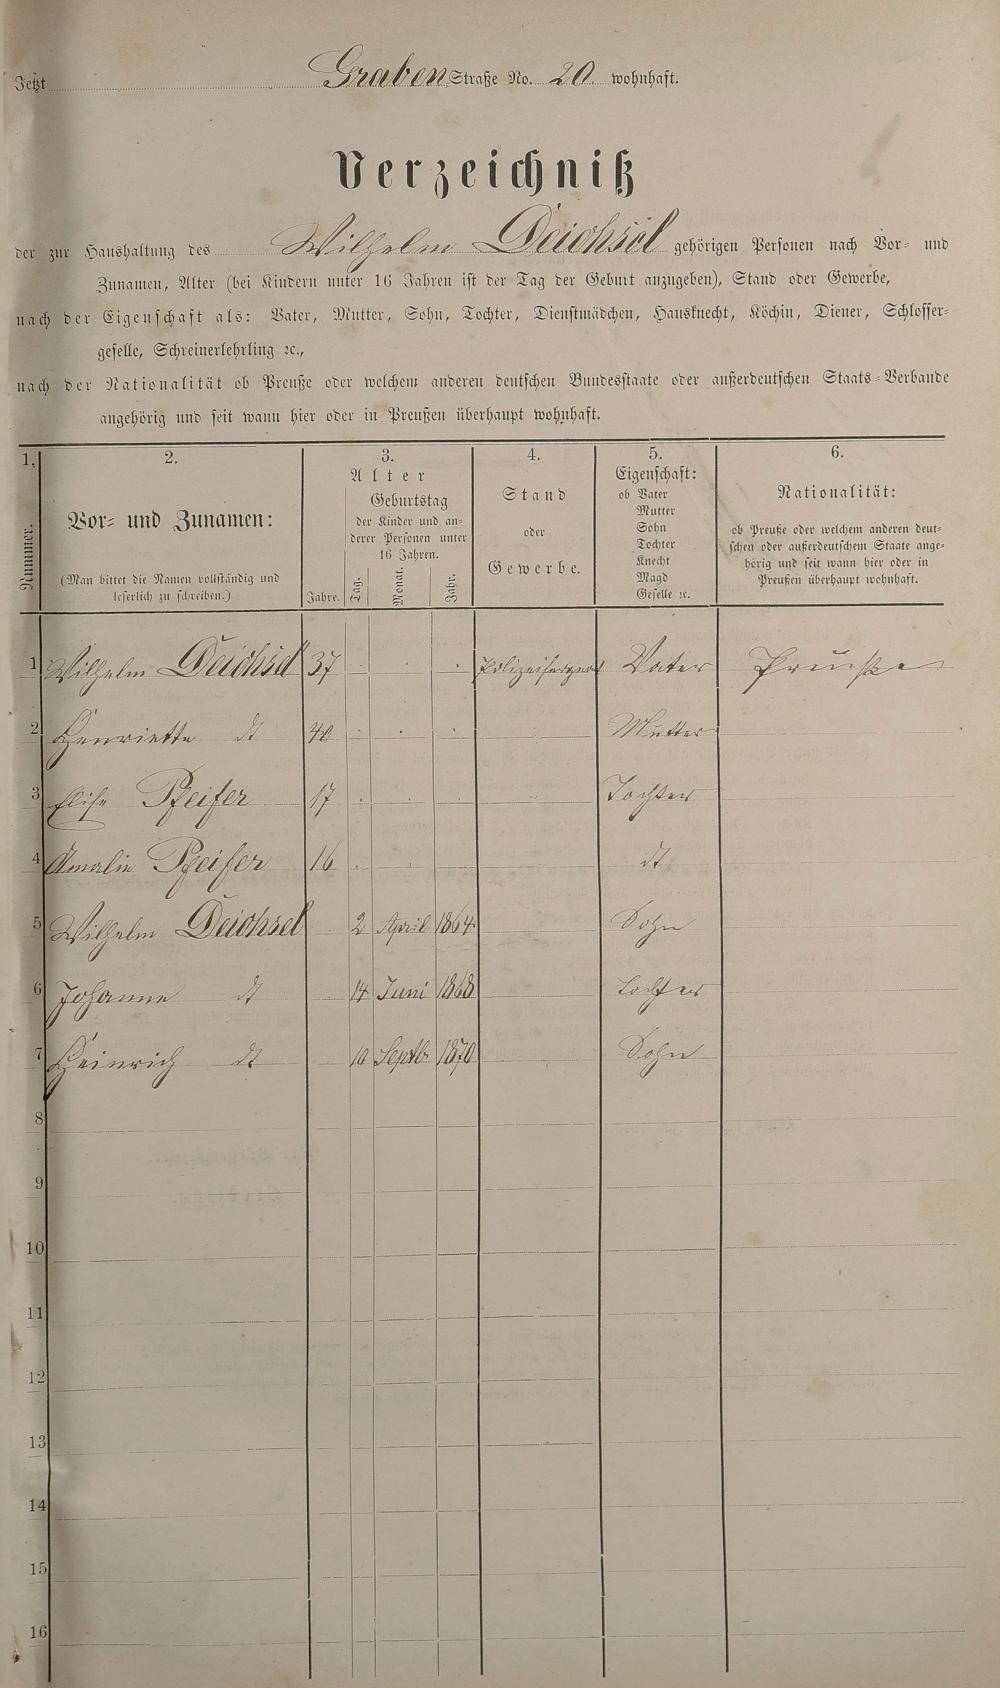 Jetzt Graben Straße No. 20 wohnhaft.
Verzeichniß
der zur Haushaltung des Wilhelm Deichsel gehörigen Personen nach Vor- und
Zunamen, Alter (bei Kindern unter 16 Jahren ist der Tag der Geburt anzugeben), Stand oder Gewerbe,
nach der Eigenschaft als: Vater, Mutter, Sohn, Tochter, Dienstmädchen, Hausknecht, Köchin, Diener, Schlosser-
geselle, Schreinerlehrling ꝛc.,
nach der Nationalität ob Preuße oder welchem anderen deutschen Bundesstaate oder außerdeutschen Staats-Verbande
angehörig und seit wann hier oder in Preußen überhaupt wohnhaft.
1.
Nummer.
2.
Vor- und Zunamen:
(Man bittet die Namen vollständig und
leserlich zu schreiben.)
3.
Alter
Jahre.
Geburtstag
der Kinder und an-
derer Personen unter
16 Jahren.
Tag. Monat. Jahr.
4.
Stand
oder
Gewerbe.
5.
Eigenschaft:
ob Vater
Mutter
Sohn
Tochter
Knecht
Magd
Geselle ꝛc.
6.
Nationalität:
ob Preuße oder welchem anderen deut-
schen oder außerdeutschem Staate ange-
hörig und seit wann hier oder in
Preußen überhaupt wohnhaft.
1 Wilhelm Deichsel 37 Polizeisergeant Vater Preuße
2 Henriette dt 40 Mutter
3 Elise Pfeifer 17 Tochter
4 Amalie Pfeifer 16 dt
5 Wilhelm Deichsel 2 April 1864 Sohn
6 Johanne dt 14 Juni 1868 Tochter
7 Heinrich dt 10 Septb. 1870 Sohn
8
9
10
11
12
13
14
15
16